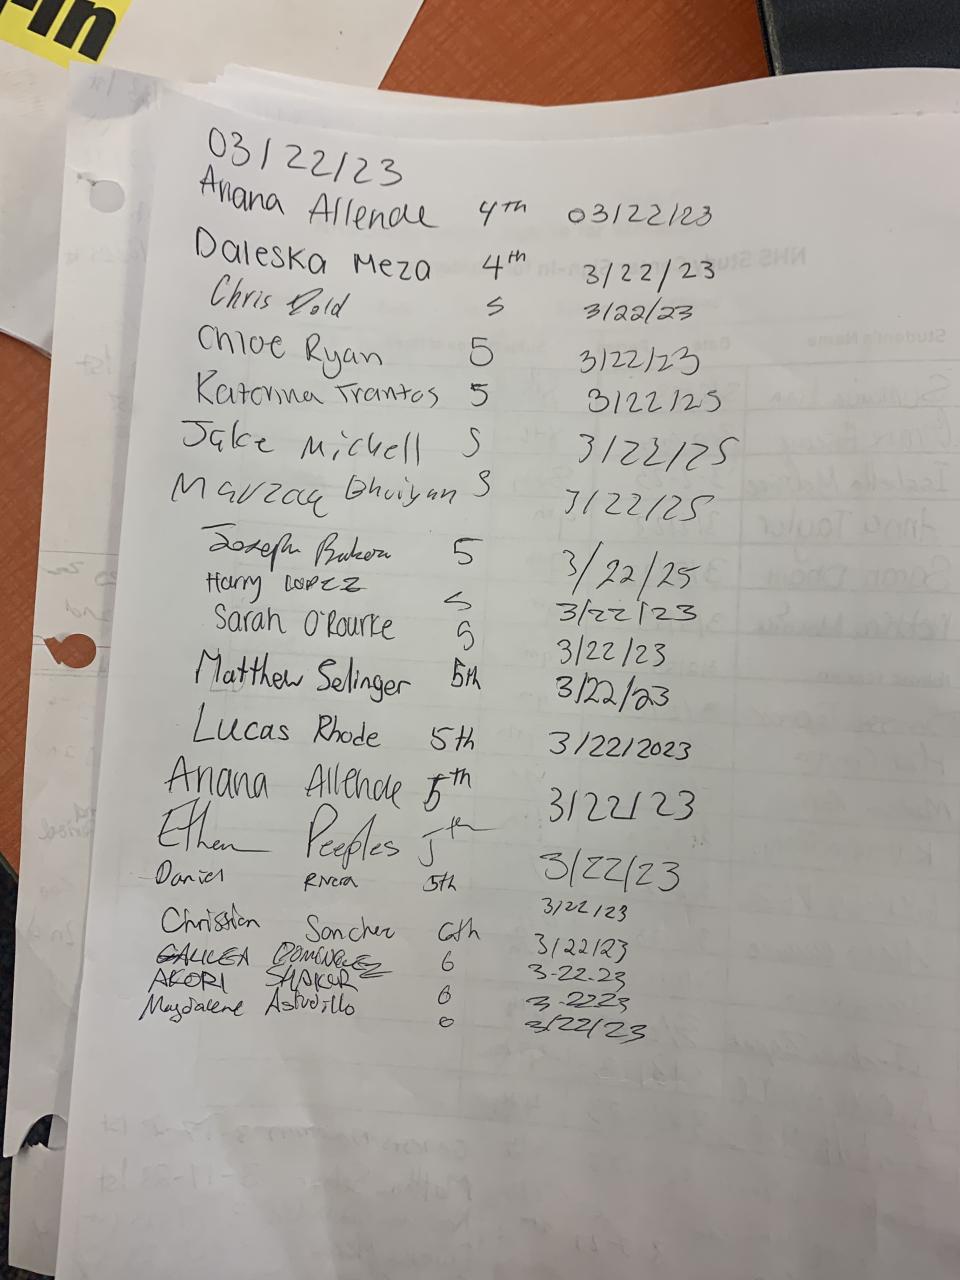 -In
03/22/23
Anana Allende 4th 03/22/23
Daleska Meza 4th 3/22/23
Chris 5 3/22/23
Chloe Ryan 5 3/22/23
Katerina Trantos 5 3/22/23
Jake Mickell 5 3/22/25
Marzaq Bhuiyan 5 3/22/25
Joseph 5 3/22/25
Harry LOPEZ 5 3/22/23
Sarah O'Rourke 5 3/22/23
Matthew Selinger 5th 3/22/23
Lucas Rhode 5th 3/22/2023
Anana Allende 5th 3/22/23
Ethan Peeples 5th 3/22/23
Daniel Rivera 5th 3/22/23
Christian Sanchez 6th 3/22/23
GALILEA 6 3-22-23
AKORI SHAKUR 6 3-2223
Magdalene Astudillo 6 3/22/23